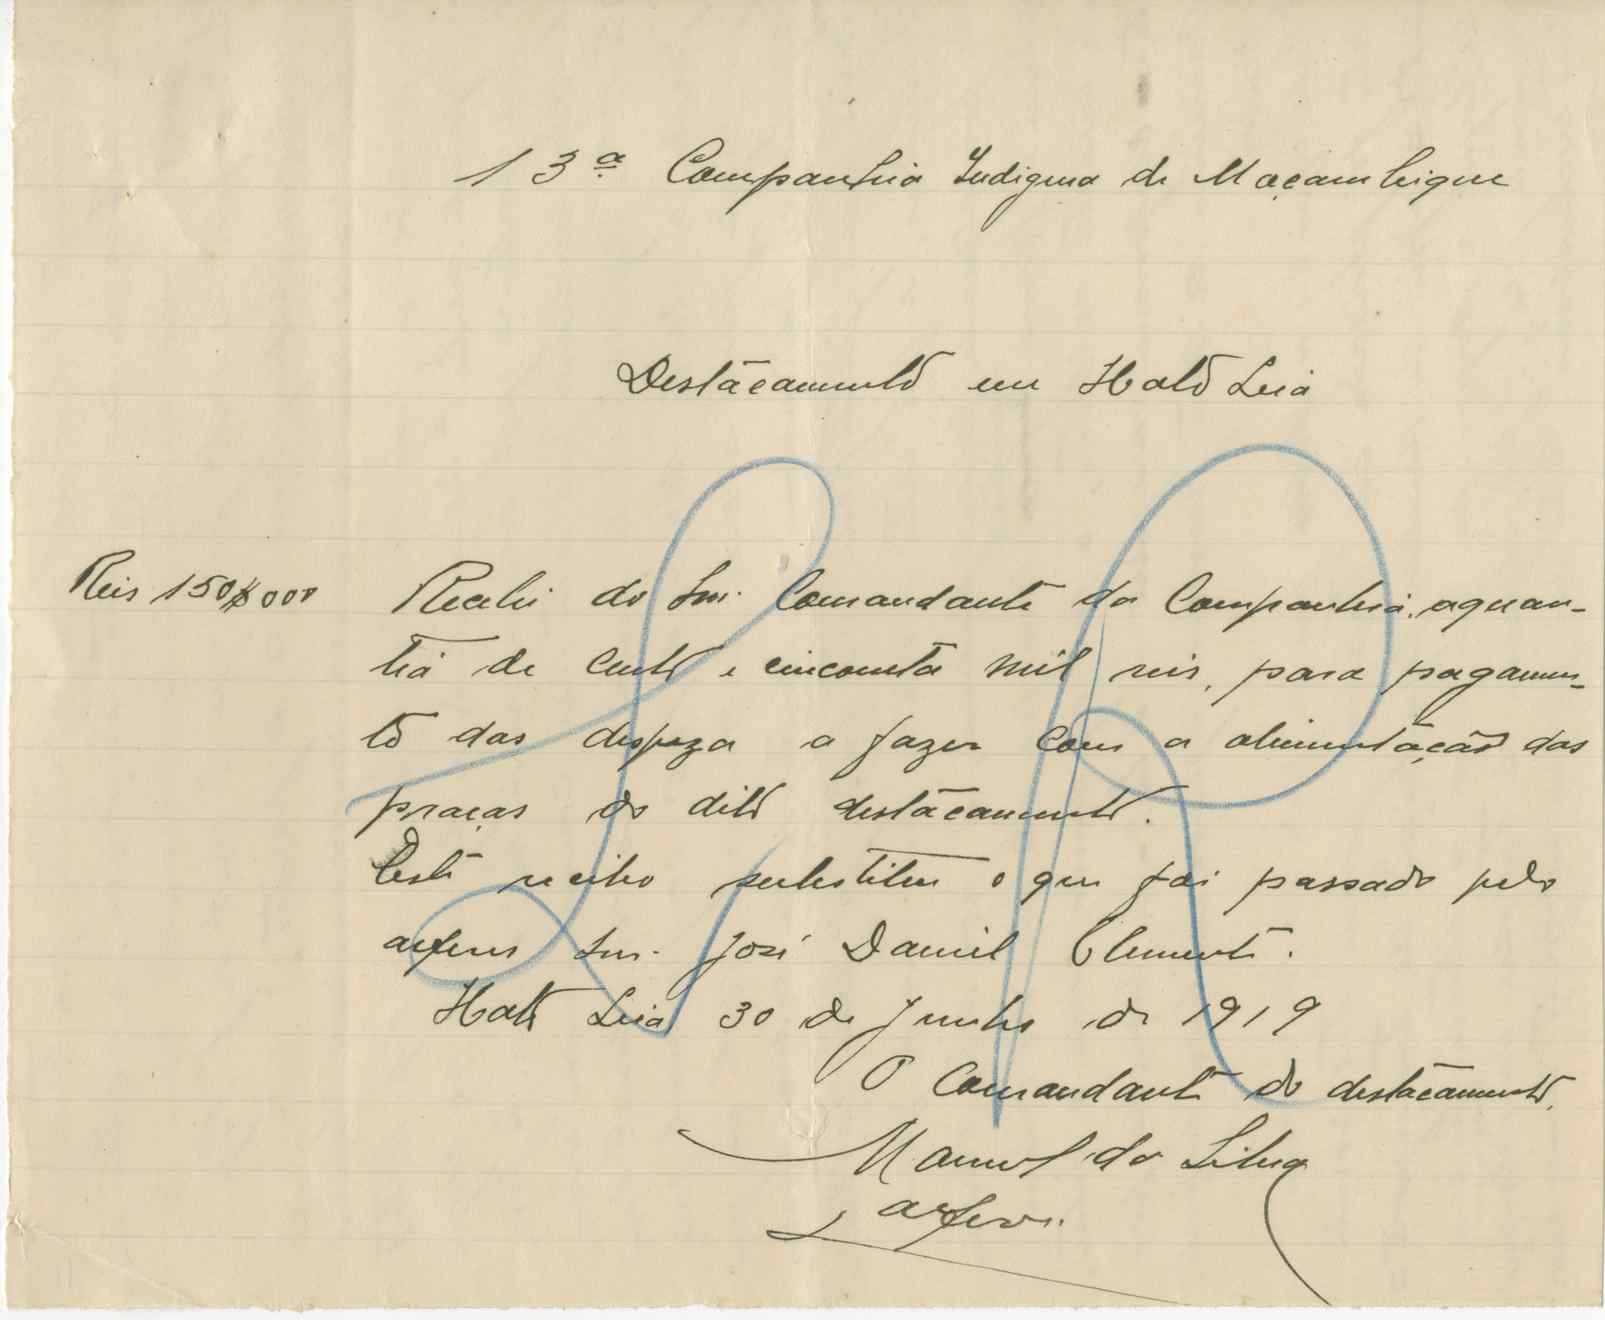 13ª Companhia Indigena de Moçambique
Destacamento em Hato Lia
Reis 150$000
Recebi do Snr. Comandante da Companhia, aquan-
tia de cento e cincoenta mil reis, para pagamen-
to das despeza a fazer com a alimentação das
praças do dito destacamento.
Este recibo substitue o que foi passado pelo
alferes Snr. José Daniel Clemente.
Hato Lia 30 de Junho de 1919
O Comandante do destacamento.
Manuel da Silva
alferes.